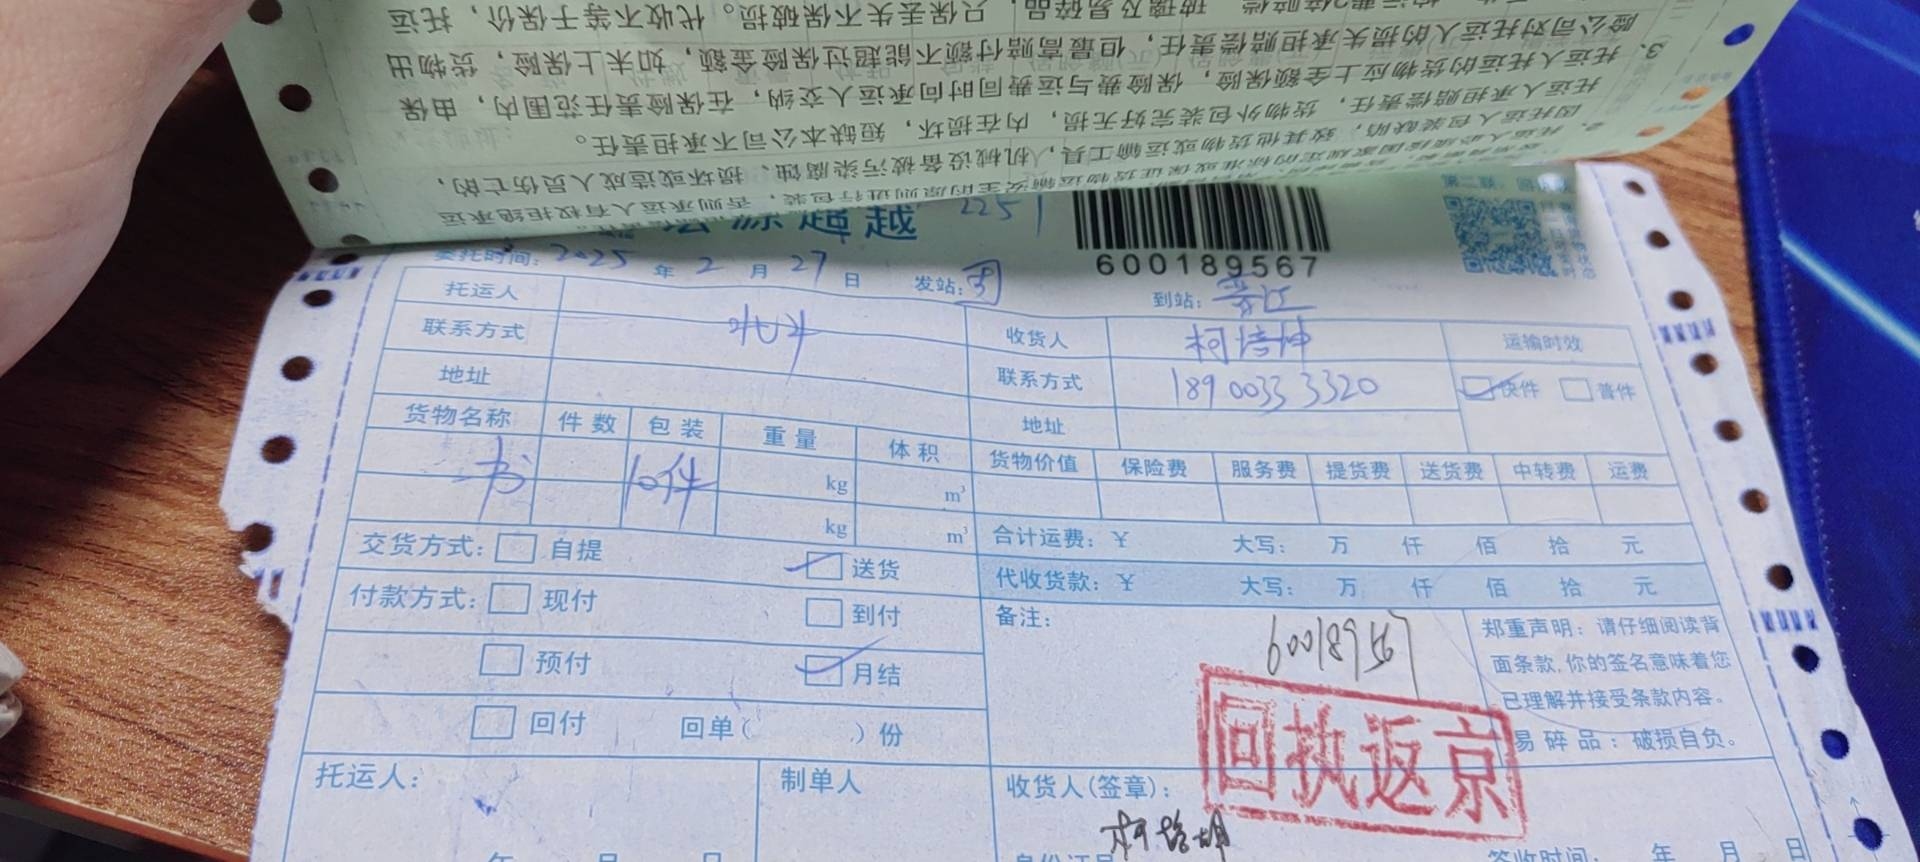 运费 赔偿 玻璃及易碎品，只保丢失不保破损。代收不等于保价，托运
险公司对托运人的损失承担赔偿责任，但最高赔付额不能超过保险金额，如未上保险，货物出
3. 托运人托运的货物应上全额保险，保险费与运费同时向承运人交纳，在保险责任范围内，由保
托运人承担赔偿责任，货物外包装完好无损，内在损坏，短缺本公司不承担责任。
因托运人包装缺陷，致其他货物或运输工具，机械设备被污染腐蚀、损坏或造成人员伤亡的，
进行包装，否则承运人有权拒绝承运
超越
2251
600189567
第二联：
委托时间：2025 年 2 月 27 日
发站：
到站：
托运人
联系方式
地址
收货人
联系方式 189 0033 3320
地址
运输时效
快件 普件
货物名称 件数 包装 重量 体积
书 10件 kg m³
kg m³
货物价值 保险费 服务费 提货费 送货费 中转费 运费
交货方式： 自提 送货
合计运费：¥ 大写： 万 仟 佰 拾 元
代收货款：¥ 大写： 万 仟 佰 拾 元
付款方式： 现付 到付
预付 月结
回付 回单（ ）份
备注：
600189567
郑重声明：请仔细阅读背
面条款，你的签名意味着您
已理解并接受条款内容。
易碎品：破损自负。
回执返京
托运人：
制单人
收货人(签章)：
年 月 日
身份证号
签收时间： 年 月 日